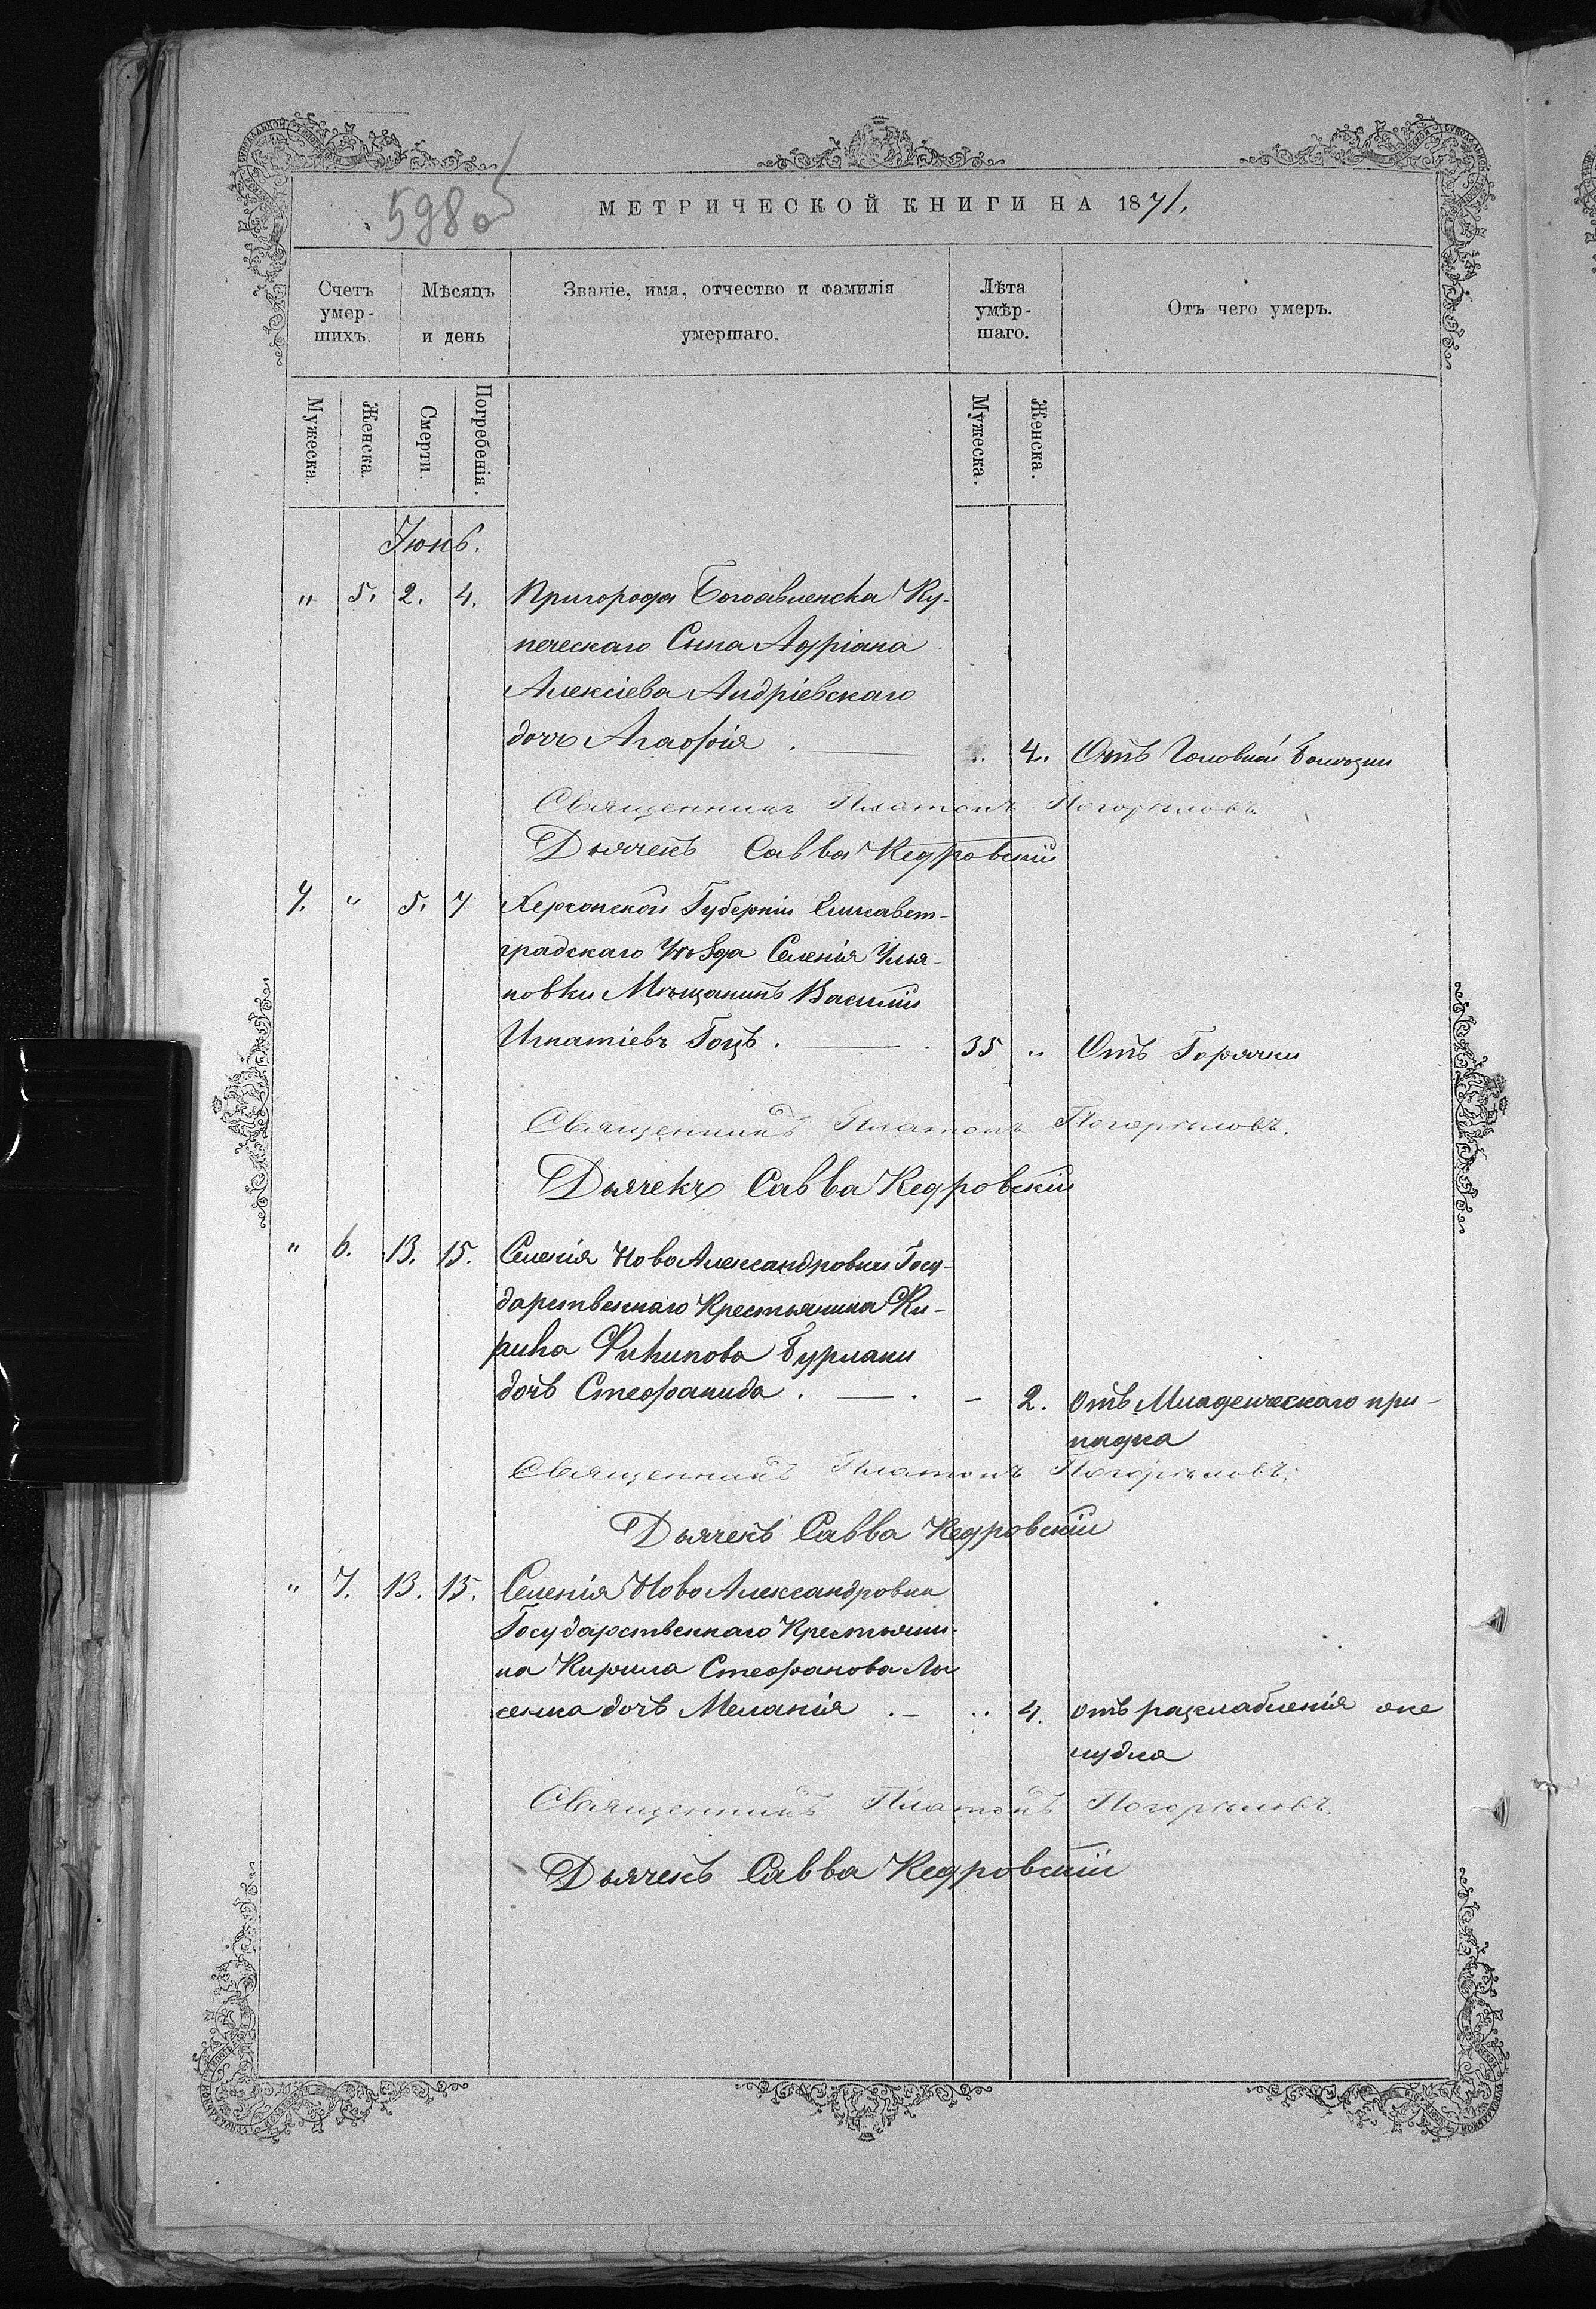 598 об
МЕТРИЧЕСКОЙ КНИГИ НА 1871.
Счетъ умер-шихъ.
Мѣсяцъ и день
Званіе, имя, отчество и фамилія умершаго.
Лѣта умѣр-шаго.
Отъ чего умеръ.
Мужеска.
Женска.
Смерти.
Погребенія.
Мужеска.
Женска.
Іюнь.
" 5. 2. 4. Пригорода Богоявленска Ку-
печескаго Сына Адріана
Алексіева Андріевскаго
дочь Агафія . — " 4. Отъ Головной болѣзни
Священникъ Платонъ Погорѣловъ
Дьячекъ Савва Кедровскій
7. " 5. 7 Херсонской Губерніи Елисавет-
градскаго Уѣзда Селенія Улья-
новки Мѣщанинъ Василій
Игнатіевъ Гоцъ . — . 35 " Отъ Горячки
Священникъ Платонъ Погорѣловъ.
Дьячекъ Савва Кедровскій
" 6. 13. 15. Селенія НовоАлександровки Госу-
дарственнаго Крестьянина Ки-
рила Филипова Бурлаки
дочь Стефанида . — . - 2. Отъ Младенческаго при-
падка
Священникъ Платонъ Погорѣловъ.
Дьячекъ Савва Кедровскій
" 7. 13. 15. Селенія НовоАлександровки
Государственнаго Крестьяни-
на Кирила Стефанова
дочь Меланія . - " 4. отъ разслабленія же
лудка
Священникъ Платонъ Погорѣловъ.
Дьячекъ Савва Кедровскій